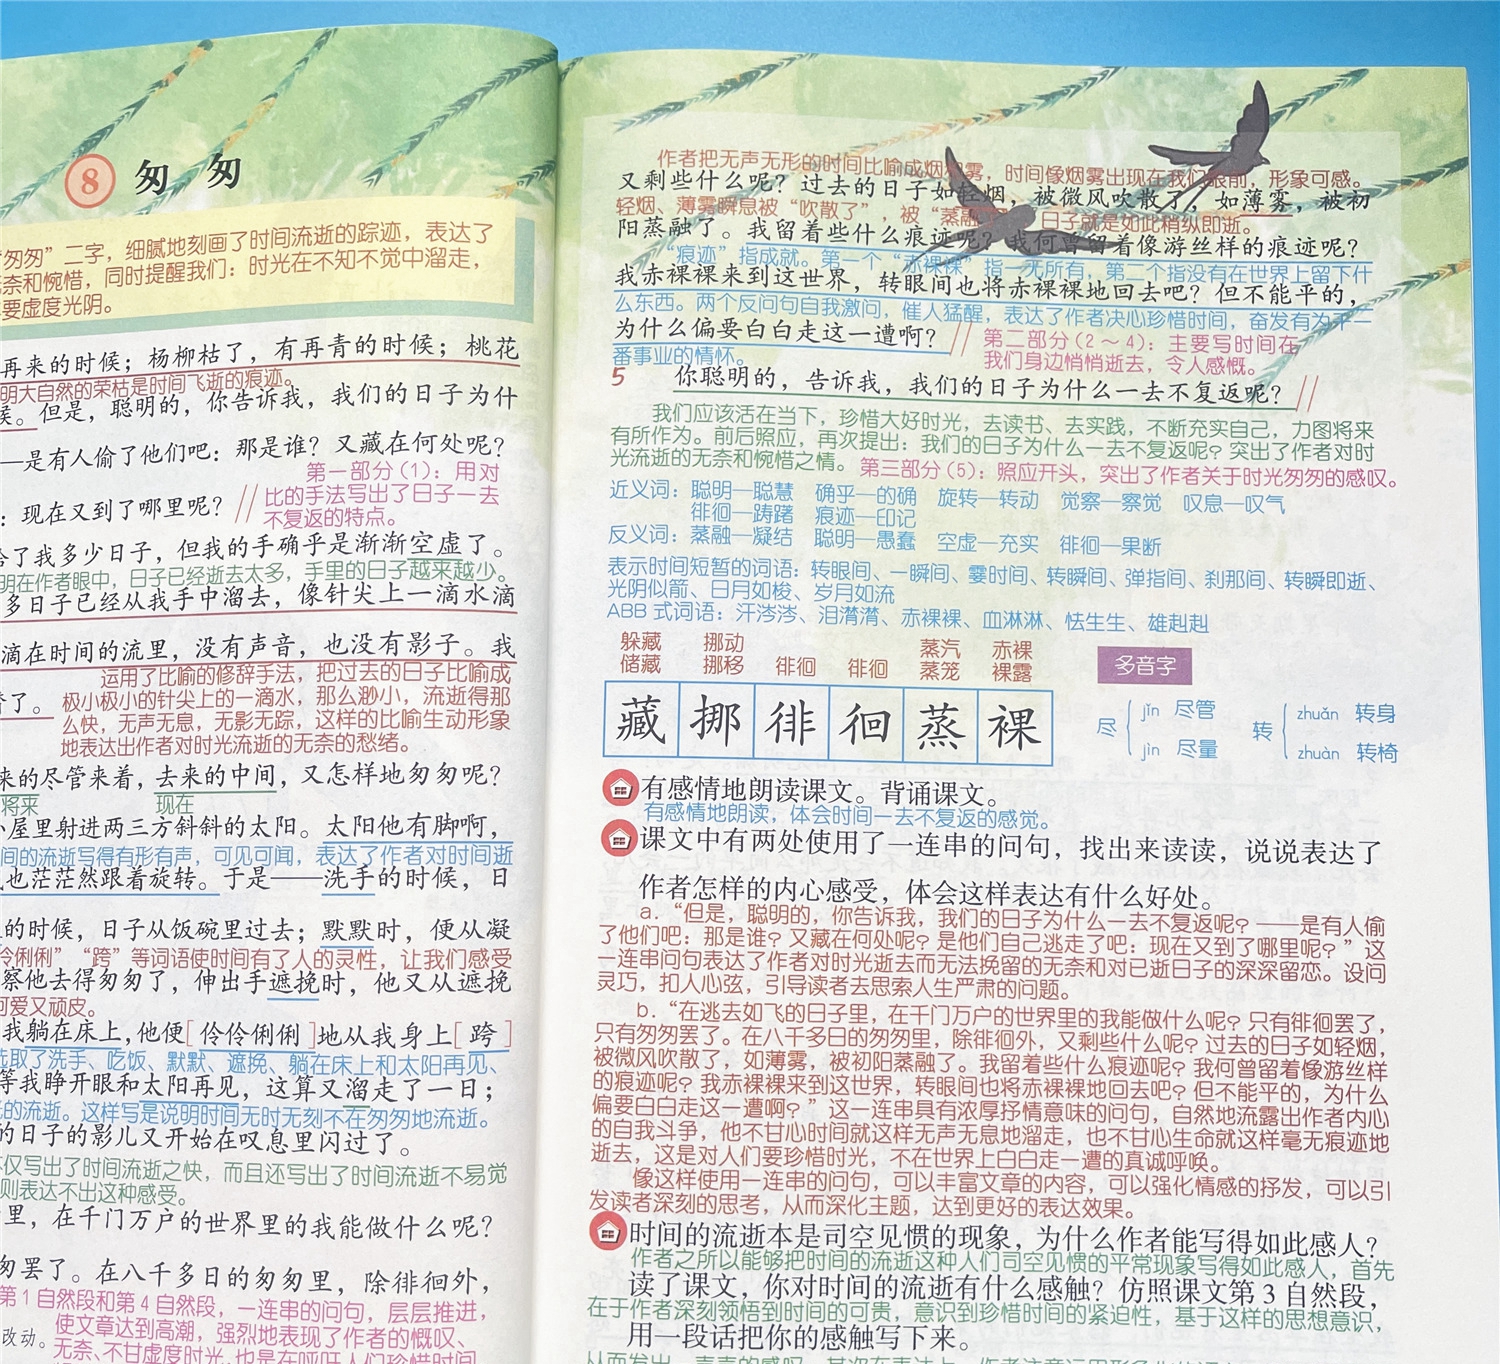 8 匆匆
“匆匆”二字，细腻地刻画了时间流逝的踪迹，表达了
奈和惋惜，同时提醒我们：时光在不知不觉中溜走，
要虚度光阴。
再来的时候；杨柳枯了，有再青的时候；桃花
明大自然的荣枯是时间飞逝的痕迹。
候。但是，聪明的，你告诉我，我们的日子为什
——是有人偷了他们吧：那是谁？又藏在何处呢？
第一部分（1）：用对
比的手法写出了日子一去
不复返的特点。
：现在又到了哪里呢？
给了我多少日子，但我的手确乎是渐渐空虚了。
明在作者眼中，日子已经逝去太多，手里的日子越来越少。
多日子已经从我手中溜去，像针尖上一滴水滴
滴在时间的流里，没有声音，也没有影子。我
运用了比喻的修辞手法，把过去的日子比喻成
极小极小的针尖上的一滴水，那么渺小，流逝得那
么快，无声无息，无影无踪，这样的比喻生动形象
地表达出作者对时光流逝的无奈的愁绪。
了。
来的尽管来着，去来的中间，又怎样地匆匆呢？
将来 现在
小屋里射进两三方斜斜的太阳。太阳他有脚啊，
间的流逝写得有形有声，可见可闻，表达了作者对时间逝
也茫茫然跟着旋转。于是——洗手的时候，日
的时候，日子从饭碗里过去；默默时，便从凝
伶俐俐”“跨”等词语使时间有了人的灵性，让我们感受
察他去得匆匆了，伸出手遮挽时，他又从遮挽
可爱又顽皮。
我躺在床上，他便[伶伶俐俐]地从我身上[跨]
选取了洗手、吃饭、默默、遮挽、躺在床上和太阳再见、
等我睁开眼和太阳再见，这算又溜走了一日；
的流逝。这样写是说明时间无时无刻不在匆匆地流逝。
的日子的影儿又开始在叹息里闪过了。
不仅写出了时间流逝之快，而且还写出了时间流逝不易觉
则表达不出这种感受。
里，在千门万户的世界里的我能做什么呢？
匆罢了。在八千多日的匆匆里，除徘徊外，
第1自然段和第4自然段，一连串的问句，层层推进，
使文章达到高潮，强烈地表现了作者的慨叹、
改动。
无奈、不甘虚度时光，也是在呼吁人们珍惜时间
作者把无声无形的时间比喻成烟和雾，时间像烟雾出现在我们眼前，形象可感。
又剩些什么呢？过去的日子如轻烟，被微风吹散了，如薄雾，被初
轻烟、薄雾瞬息被“吹散了”，被“蒸融了”，日子就是如此稍纵即逝。
阳蒸融了。我留着些什么痕迹呢？我何曾留着像游丝样的痕迹呢？
“痕迹”指成就。第一个“赤裸裸”指一无所有，第二个指没有在世界上留下什
我赤裸裸来到这世界，转眼间也将赤裸裸地回去吧？但不能平的，
么东西。两个反问句自我激问，催人猛醒，表达了作者决心珍惜时间，奋发有为干一
为什么偏要白白走这一遭啊？
第二部分（2～4）：主要写时间在
番事业的情怀。
我们身边悄悄逝去，令人感慨。
5 你聪明的，告诉我，我们的日子为什么一去不复返呢？
我们应该活在当下，珍惜大好时光，去读书、去实践，不断充实自己，力图将来
有所作为。前后照应，再次提出：我们的日子为什么一去不复返呢？突出了作者对时
光流逝的无奈和惋惜之情。第三部分（5）：照应开头，突出了作者关于时光匆匆的感叹。
近义词：聪明—聪慧 确乎—的确 旋转—转动 觉察—察觉 叹息—叹气
徘徊—踌躇 痕迹—印记
反义词：蒸融—凝结 聪明—愚蠢 空虚—充实 徘徊—果断
表示时间短暂的词语：转眼间、一瞬间、霎时间、转瞬间、弹指间、刹那间、转瞬即逝、
光阴似箭、日月如梭、岁月如流
ABB 式词语：汗涔涔、泪潸潸、赤裸裸、血淋淋、怯生生、雄赳赳
躲藏 挪动 蒸汽 赤裸
储藏 挪移 徘徊 徘徊 蒸笼 裸露
多音字
藏 挪 徘 徊 蒸 裸
尽 jǐn 尽管 jìn 尽量
转 zhuǎn 转身 zhuàn 转椅
有感情地朗读课文。背诵课文。
有感情地朗读，体会时间一去不复返的感觉。
课文中有两处使用了一连串的问句，找出来读读，说说表达了
作者怎样的内心感受，体会这样表达有什么好处。
a.“但是，聪明的，你告诉我，我们的日子为什么一去不复返呢？——是有人偷
了他们吧：那是谁？又藏在何处呢？是他们自己逃走了吧：现在又到了哪里呢？”这
一连串问句表达了作者对时光逝去而无法挽留的无奈和对已逝日子的深深留恋。设问
灵巧，扣人心弦，引导读者去思索人生严肃的问题。
b.“在逃去如飞的日子里，在千门万户的世界里的我能做什么呢？只有徘徊罢了，
只有匆匆罢了。在八千多日的匆匆里，除徘徊外，又剩些什么呢？过去的日子如轻烟，
被微风吹散了，如薄雾，被初阳蒸融了。我留着些什么痕迹呢？我何曾留着像游丝样
的痕迹呢？我赤裸裸来到这世界，转眼间也将赤裸裸地回去吧？但不能平的，为什么
偏要白白走这一遭啊？”这一连串具有浓厚抒情意味的问句，自然地流露出作者内心
的自我斗争，他不甘心时间就这样无声无息地溜走，也不甘心生命就这样毫无痕迹地
逝去，这是对人们要珍惜时光，不在世界上白白走一遭的真诚呼唤。
像这样使用一连串的问句，可以丰富文章的内容，可以强化情感的抒发，可以引
发读者深刻的思考，从而深化主题，达到更好的表达效果。
时间的流逝本是司空见惯的现象，为什么作者能写得如此感人？
作者之所以能够把时间的流逝这种人们司空见惯的平常现象写得如此感人，首先
读了课文，你对时间的流逝有什么感触？仿照课文第 3 自然段，
在于作者深刻领悟到时间的可贵，意识到珍惜时间的紧迫性，基于这样的思想意识，
用一段话把你的感触写下来。